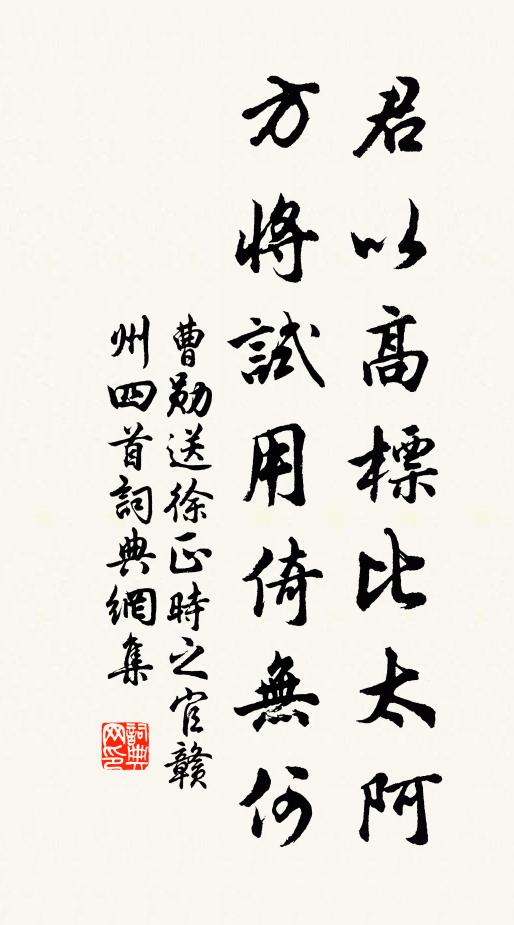 君以高標比太阿
方將試用倚無何
曹勛送徐正時之官贛
州四首詞典網集
詞典
网印